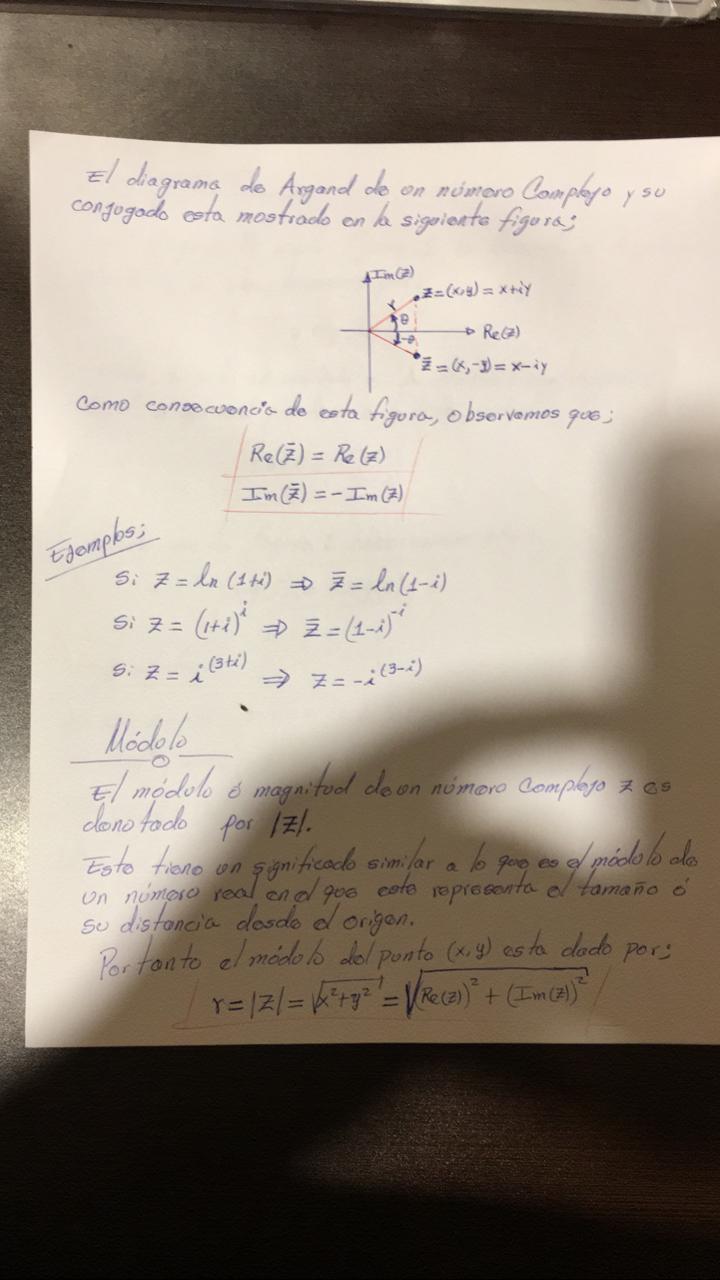 El diagrama de Argand de un número Complejo y su
conjugado esta mostrado en la siguiente figura;
Im(z)
z=(x,y) = x+iy
r
θ
Re(z)
-θ
z̄ = (x,-y) = x-iy
Como consecuencia de esta figura, observemos que;
Re(z̄) = Re(z)
Im(z̄) = - Im(z)
Ejemplos;
Si z = ln (1+i) ⇒ z̄ = ln(1-i)
Si z = (1+i)^i ⇒ z̄ = (1-i)^-i
Si z = i^(3+i) ⇒ z = -i^(3-i)
Módulo
El módulo ó magnitud de un número Complejo z es
denotado por |z|.
Este tiene un significado similar a lo que es el módulo de
un número real en el que este representa el tamaño ó
su distancia desde el origen.
Por tanto el módulo del punto (x,y) esta dado por;
r = |z| = √x²+y² = √(Re(z))² + (Im(z))²